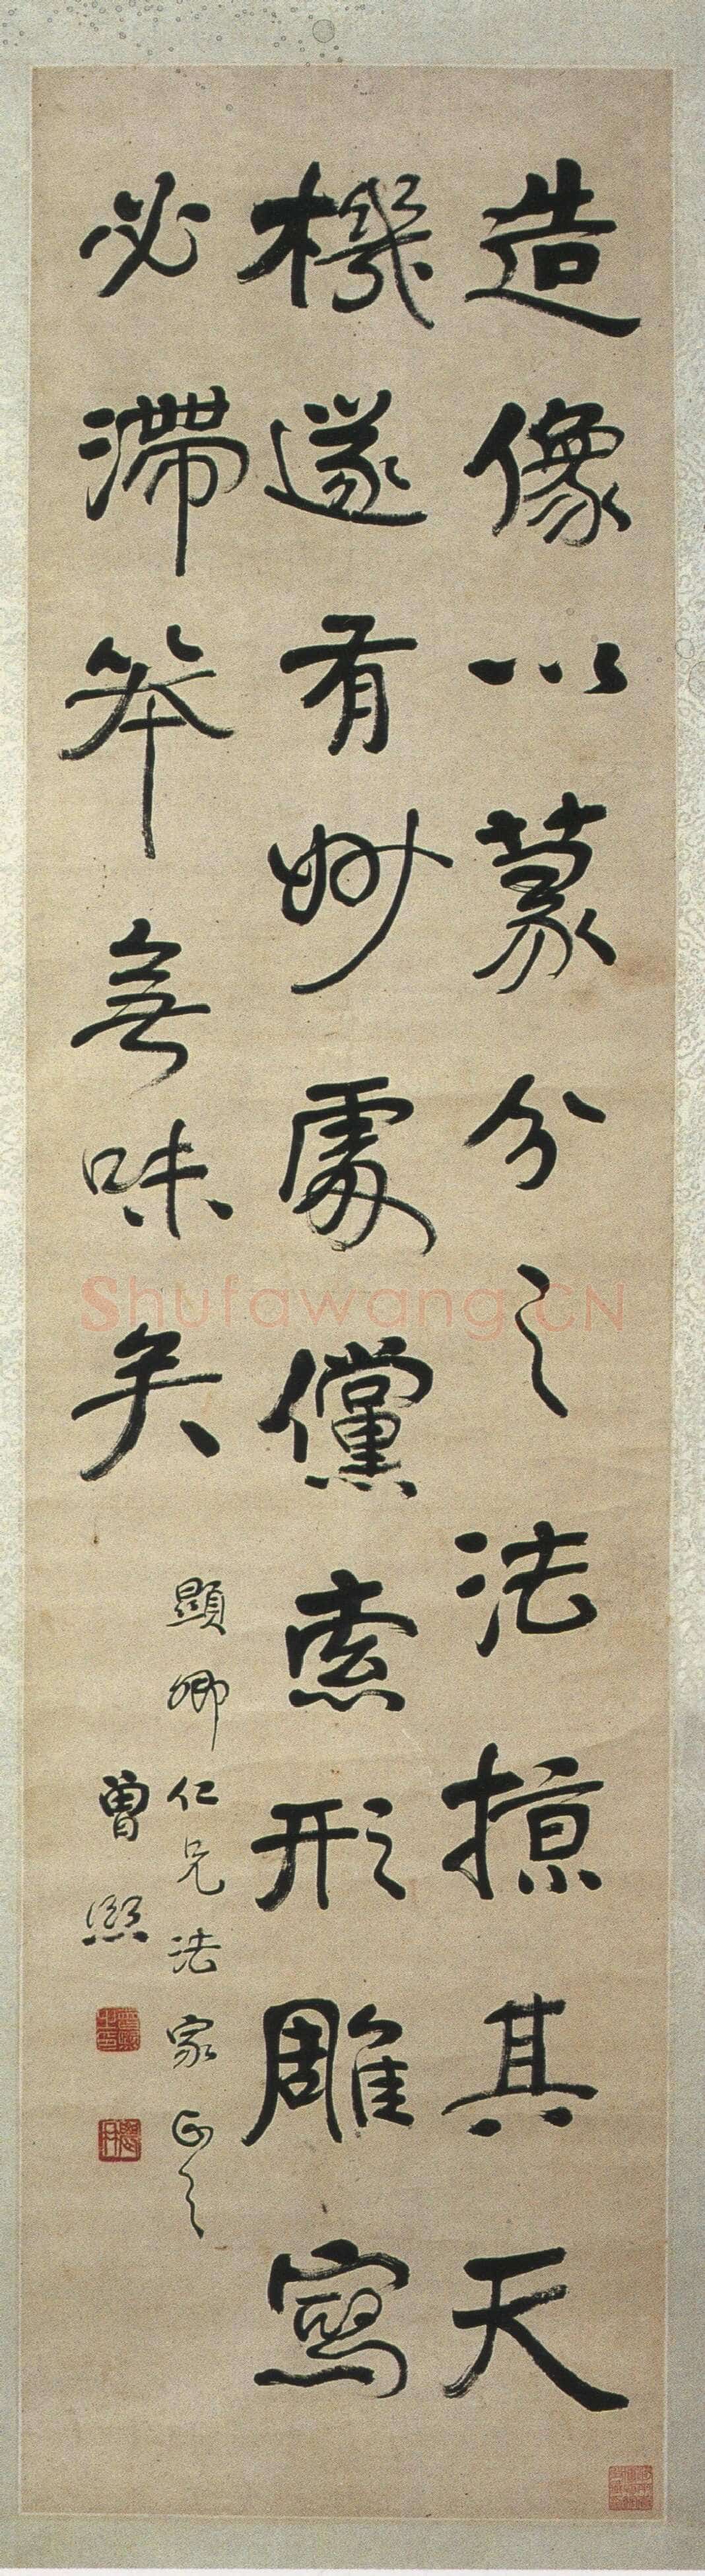 造像以篆分之法掠其天
機遂有妙處儻索形雕寫
必滯笨無味矣
顯卿仁兄法家正之
曾熙
Shufawang.CN